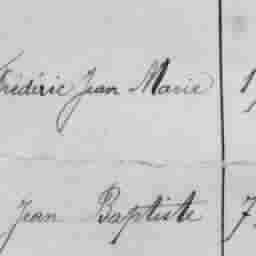 Frédéric Jean Marie 1
Jean Baptiste 7